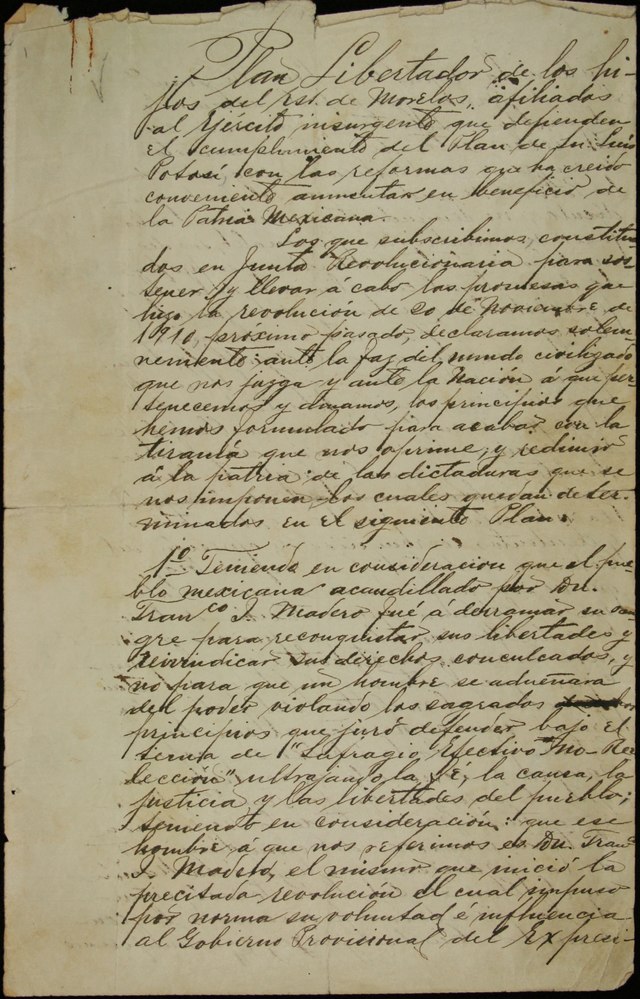 Plan Libertador de los hi-
jos del Est. de Morelos, afiliados
al Ejército insurgente que defienden
el cumplimiento del Plan de Sn. Luis
Potosí, con las reformas que ha creido
conveniente aumentar en beneficio de
la Patria Mexicana.
Los que subscribimos, constitui-
dos en Junta Revolucionaria para sos-
tener y llevar á cabo las promesas que
hizo la revolución de 20 de Noviembre de
1910, próximo pasado, declaramos solem-
nemente ante la faz del mundo civilizado
que nos juzga y ante la Nación á que per-
tenecemos y amamos, los principios que
hemos formulado para acabar con la
tiranía que nos oprime, y redimir
á la patria de las dictaduras que se
nos imponen las cuales quedan deter-
minados en el siguiente Plan:
1º Teniendo en consideracion que el pue-
blo mexicano acaudillado por Dn.
Franco I. Madero fué á derramar su san-
gre para reconquistar sus libertades y
reivindicar sus derechos conculcados, y
no para que un hombre se adueñara
del poder violando los sagrados
principios que juró defender bajo el
lema de "Sufragio Efectivo No-Ree-
lección" ultrajando la fé, la causa, la
justicia y las libertades del pueblo;
teniendo en consideración: que ese
hombre á que nos referimos es Dn. Franco
I. Madero, el mismo que inició la
precitada revolución el cual impuso
por norma su voluntad é influencia
al Gobierno Provisional del Ex presi-